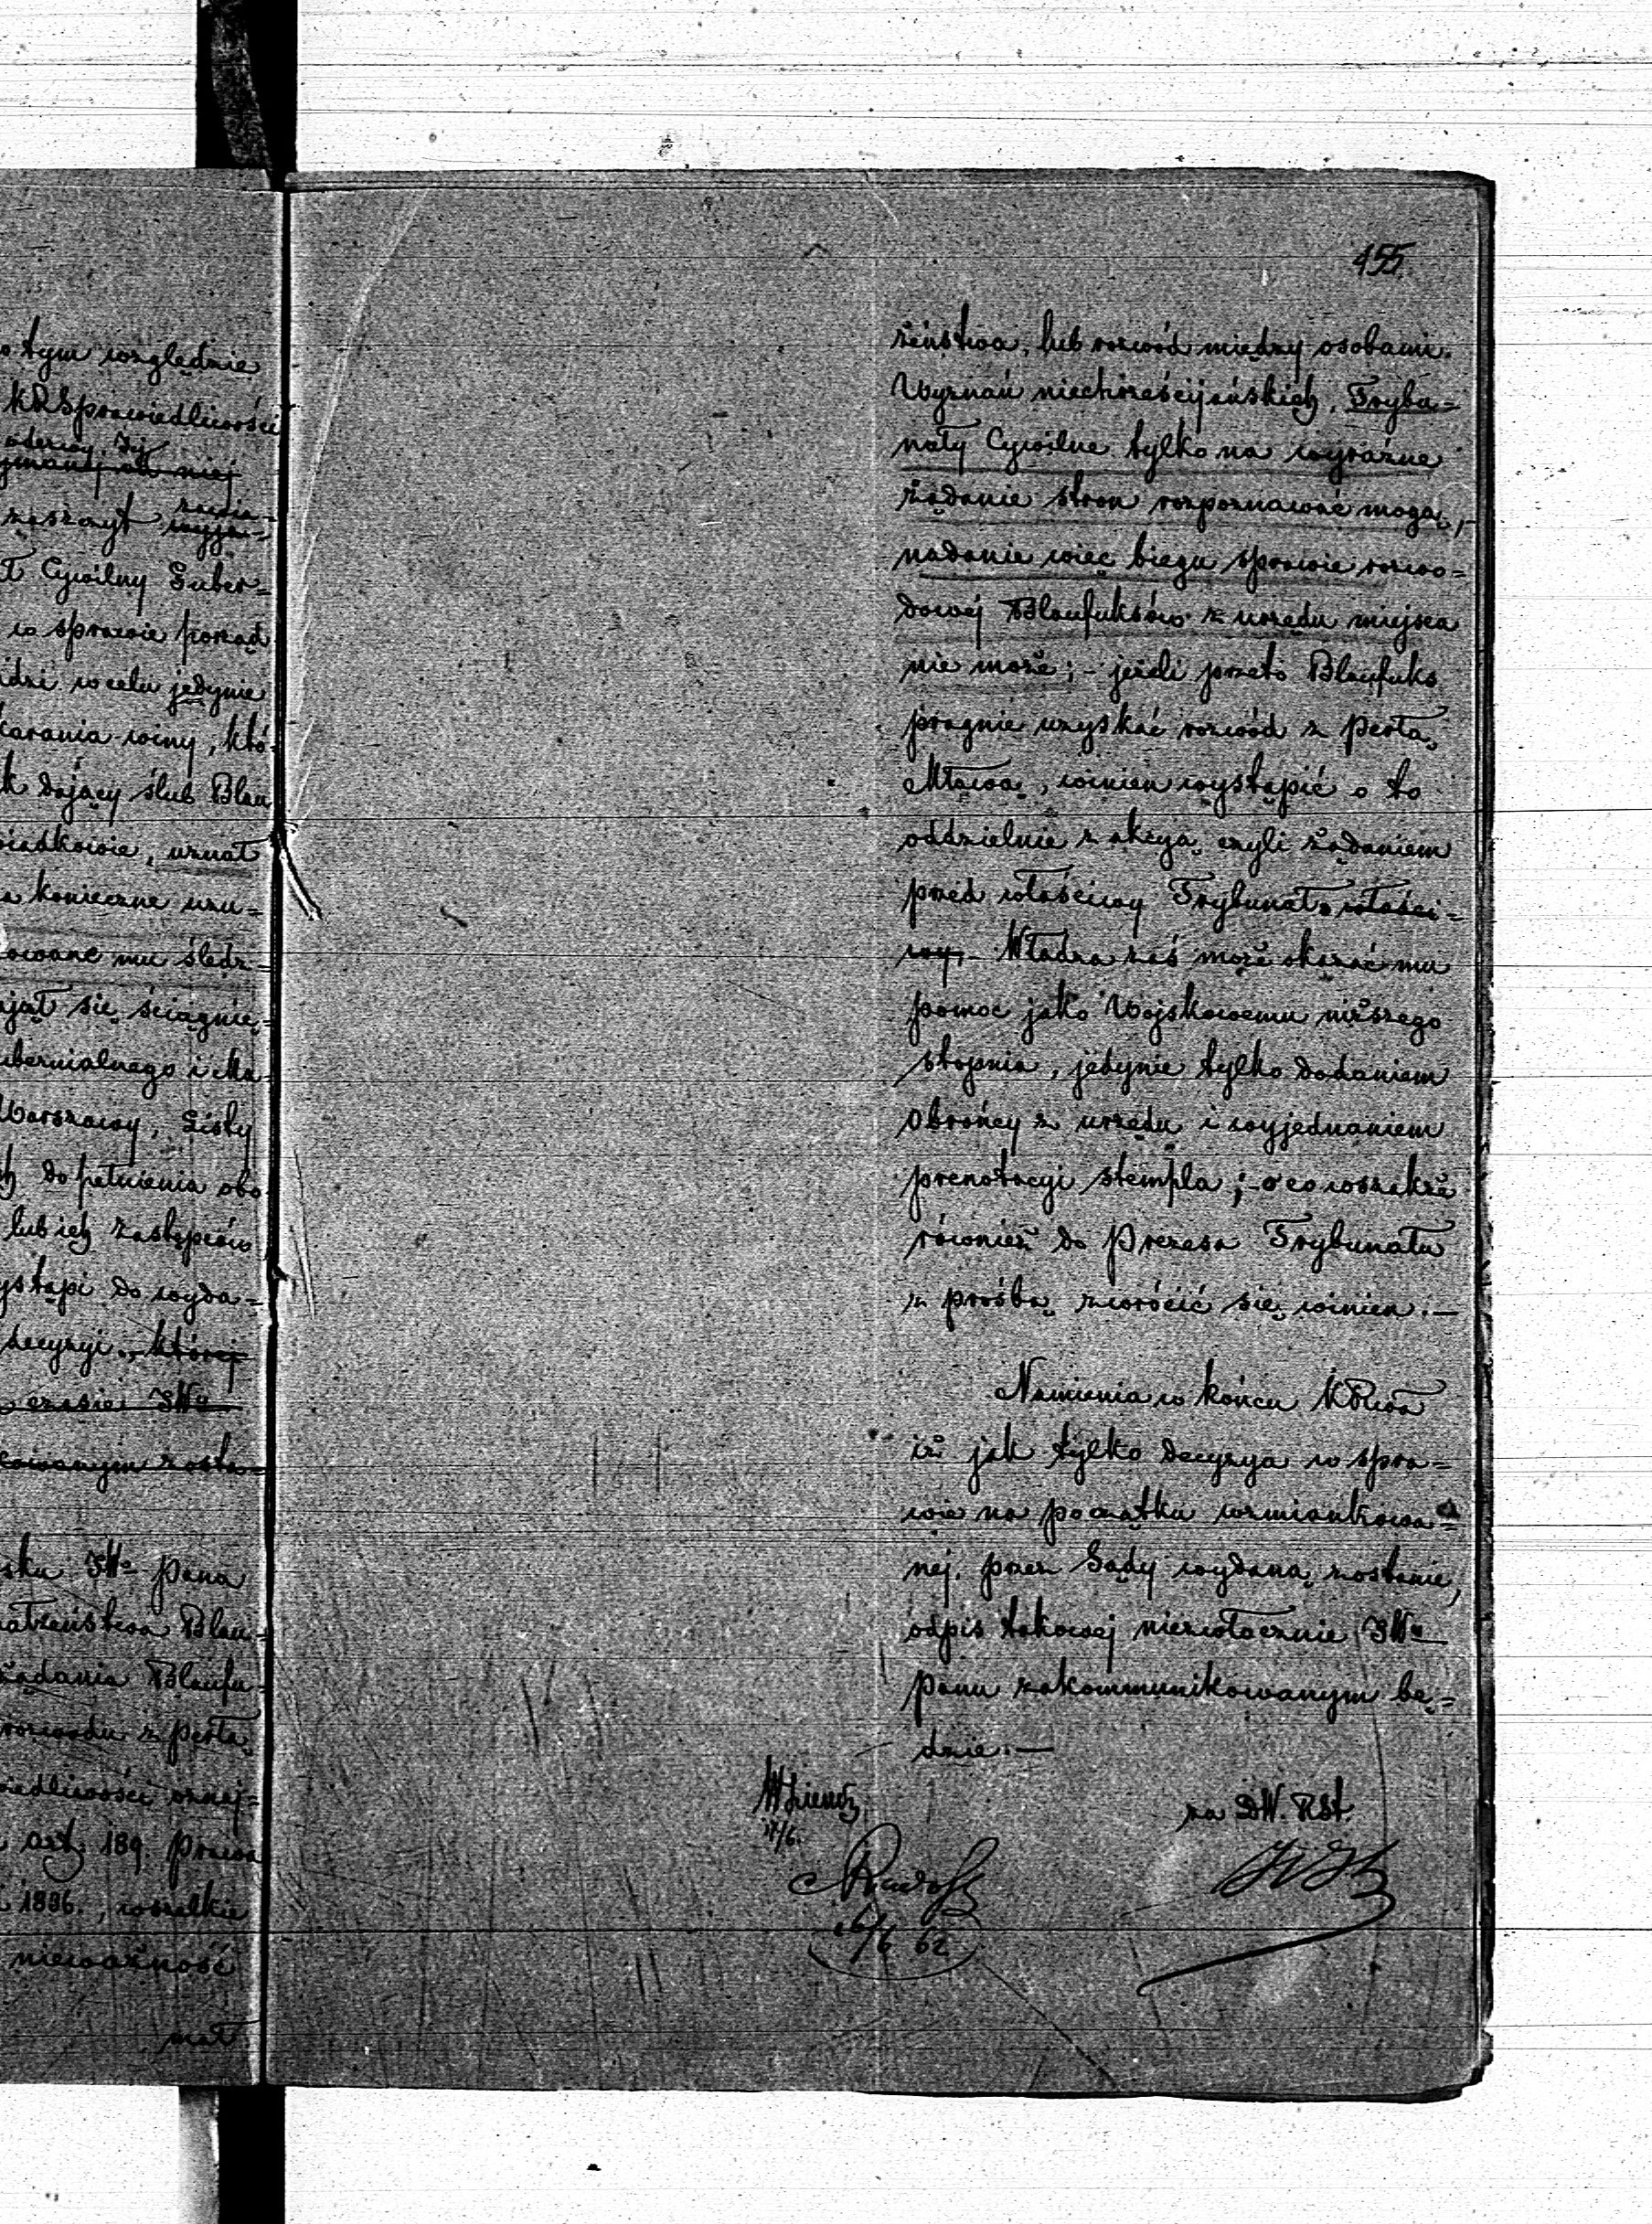 o tym względzie
KRSprawiedliwości
odezwy Jej
ymanej od niej
zawia-
zaszczyt wyja-
ł Cywilny Guber-
w sprawie porząd
idzi w celu jedynie
karania winy, któ-
k dający ślub Blau
wiadkowie, uznał
a konieczne uzu-
owane mu śledz-
ajął się ściągnię-
ubernialnego i Ma-
Warszawy, Listy
ch do pełnienia obo
lub ich zastępców
ystąpi do wyda-
decyzyi, której
czasie JWu
kowanym zosta-
sku JWo Pana
małżeństwa Blau-
żądania Blaufu-
rozwodu z Perlą
wiedliwości oznaj-
art. 189. Prawa
1836., wszelkie
nieważność
mał
455
żeństwa, lub rozwód między osobami
Wyznań niechrześcijańskich, Trybu-
nały Cywilne tylko na wyraźne
żądanie stron rozpoznawać mogą,-
nadanie więc biegu sprawie rozwo-
dowej Blaufuksów z urzędu miejsca
nie może;- jeżeli przeto Blaufuks
pragnie uzyskać rozwód z Perlą
Mławą, winien wystąpić o to
oddzielnie z akcyą czyli żądaniem
przed właściwy Trybunał. właści-
wy,- Władza zaś może okazać mu
pomoc jako Wojskowemu niższego
stopnia, jedynie tylko dodaniem
Obrońcy z urzędu i wyjednaniem
prenotacyi stempla;- o co wszakże
również do Prezesa Trybunału
z prośbą zwrócić się winien.-
Namienia w końcu KRwa
iż jak tylko decyzya w spra-
wie na początku wzmiankowa-
nej, przez Sądy wydaną zostanie,
odpis takowej niezwłocznie JWu
Panu zakommunikowanym bę-
dzie.-
17/6.
za DW. RSt.
16/6 62